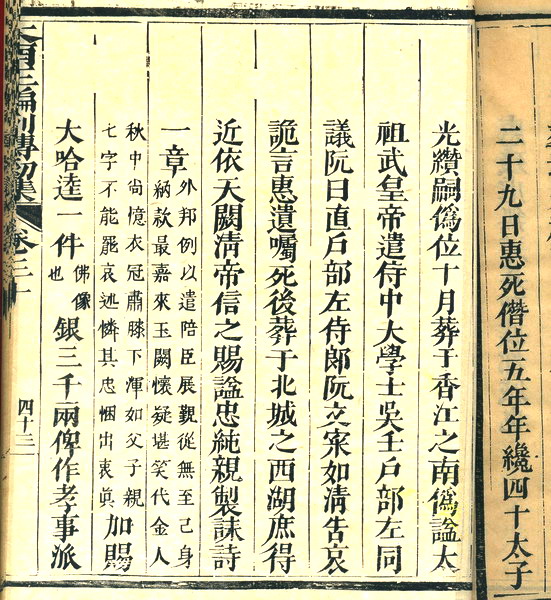 二十九日惠死僭位五年年纔四十太子
光纘嗣僞位十月葬于香江之南僞謚太
祖武皇帝遣侍中大學士吳壬戸部左同
議阮曰直戸部左侍郎阮文寀如清告哀
詭言惠遺囑死後葬于北城之西湖庶得
近依天闕清帝信之賜謚忠純親製誄詩
一章
外邦例以遣陪臣展覲從無至己身
納款最嘉來玉闕懷疑堪笑代金人
秋中尚憶衣冠肅膝下渾如父子親
七字不能罷哀述憐其忠悃出衷眞
加賜
大哈逵一件
佛像
也
銀三千兩俾作孝事派
大南正編列傳初集
卷三十
四十三